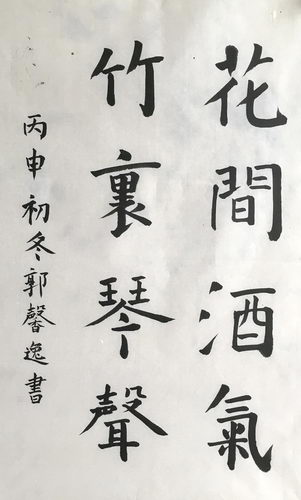 花間酒氣
竹裏琴聲
丙申初冬郭馨逸書